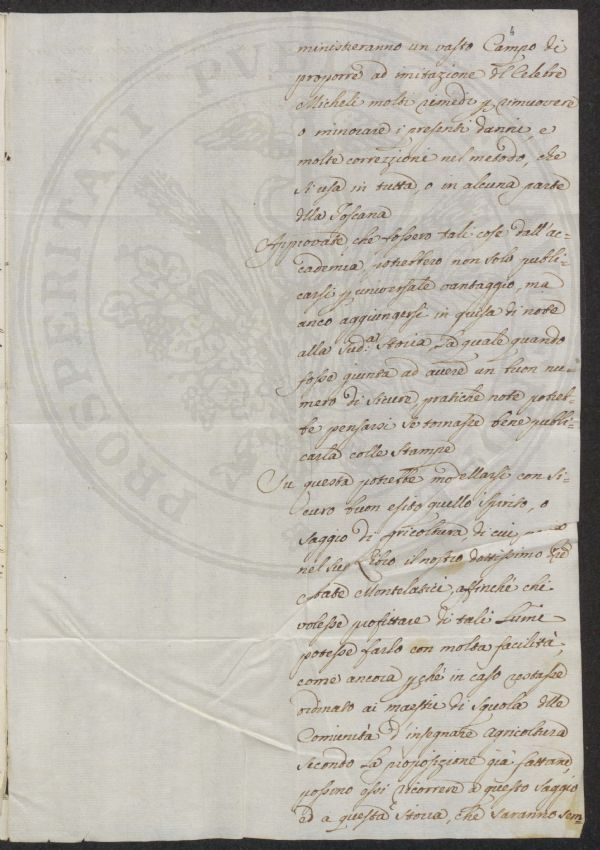 4
ministreranno un vasto Campo di
proporre ad imitazione dl Celebre
Micheli molti rimedj p rimuovere
o minorare i presenti danni, e
molte correzzioni nel metodo, che
si usa in tutta o in alcuna parte
dlla Toscana
Approvate che fossero tali cose dall'ac-
cademia, potrebbero non solo publi-
carsi p universale vantaggio, ma
anco aggiungersi in guisa di note
alla sud.ª Storia La quale quando
fosse giunta ad avere un buon nu-
mero di sicure pratiche note potreb-
be pensarsi se tornasse bene publi-
carla colle Stampe
Su questa potrebbe modellarsi con si-
curo buon esito quello Spirito, o
saggio di Agricoltura di cui
nel suo Libro il nostro dottissimo
Abate Montelatici, affinchè chi
volesse profittare di tali Lumi
potesse farlo con molta facilità,
come ancora pchè in caso restasse
ordinato ai maestri di Squola dlle
Comunità d'insegnare Agricoltura
secondo La proposizione già fattane,
possino essi ricorrere a questo saggio
ed a questa Storia, che saranno sem-
PROSPERITATI PUBL